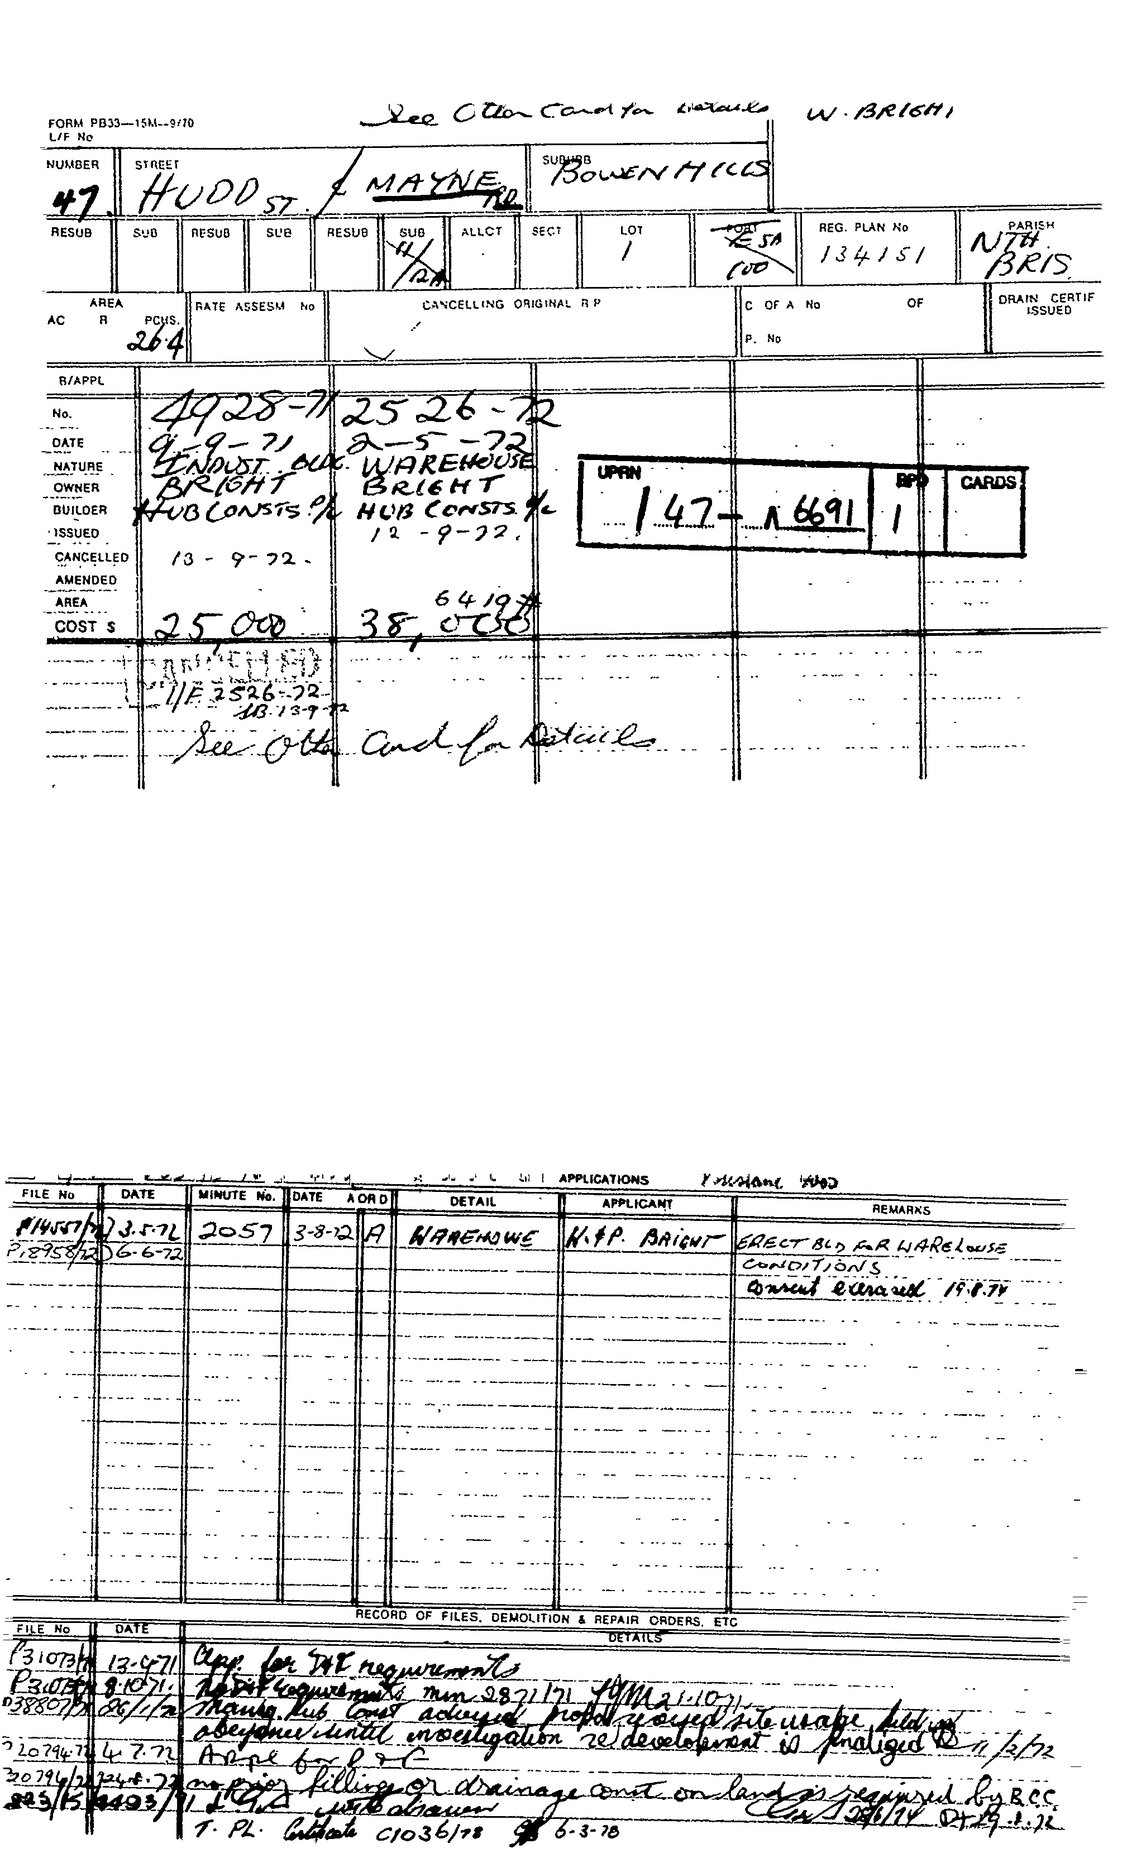 See Other Card for Details W. BRIGHT
FORM PB33—15M--9/70
L/F No
NUMBER STREET SUBURB
47. HUDD ST. / MAYNE RD BOWEN HILLS
RESUB SUB RESUB SUB RESUB SUB ALLCT SECT LOT PORT REG. PLAN No PARISH
11/12A 1 100 134151 NTH. BRIS.
AREA RATE ASSESM No CANCELLING ORIGINAL R P C OF A No OF DRAIN CERTIF ISSUED
AC R PCHS.
26.4 P. No
B/APPL
No. 4928-71 2526-72
DATE 9-9-71 2-5-72
NATURE INDUST BLDG. WAREHOUSE
OWNER BRIGHT BRIGHT
BUILDER HUB CONSTS. P/L HUB CONSTS. P/L
ISSUED 12-9-72.
CANCELLED 13-9-72.
AMENDED
AREA 6419
COST $ 25,000 38,000
UPRN RPD CARDS
147- 6691 1
CANCELLED
I/F 2526-72
13-9-72
See Other Card for Details
APPLICATIONS
FILE No DATE MINUTE No. DATE A OR D DETAIL APPLICANT REMARKS
P14557/72) 3.5.72 2057 3-8-72 A WAREHOUSE W. & P. BRIGHT ERECT BLD FOR WAREHOUSE
P18958/72) 6-6-72 CONDITIONS
Consent exercised 19.8.74
RECORD OF FILES, DEMOLITION & REPAIR ORDERS, ETC
FILE No DATE DETAILS
App. for requirements
8.10.71. requirements min 2871/71 21.10.71
Hub Const advised revised site usage held in
abeyance until investigation re development is finalized 11/2/72
20794-72 4.7.72 Appl for
20794/72 no prior filling or drainage const on land is required by BCC
withdrawn
T. PL. Certificate C1036/78 6-3-78